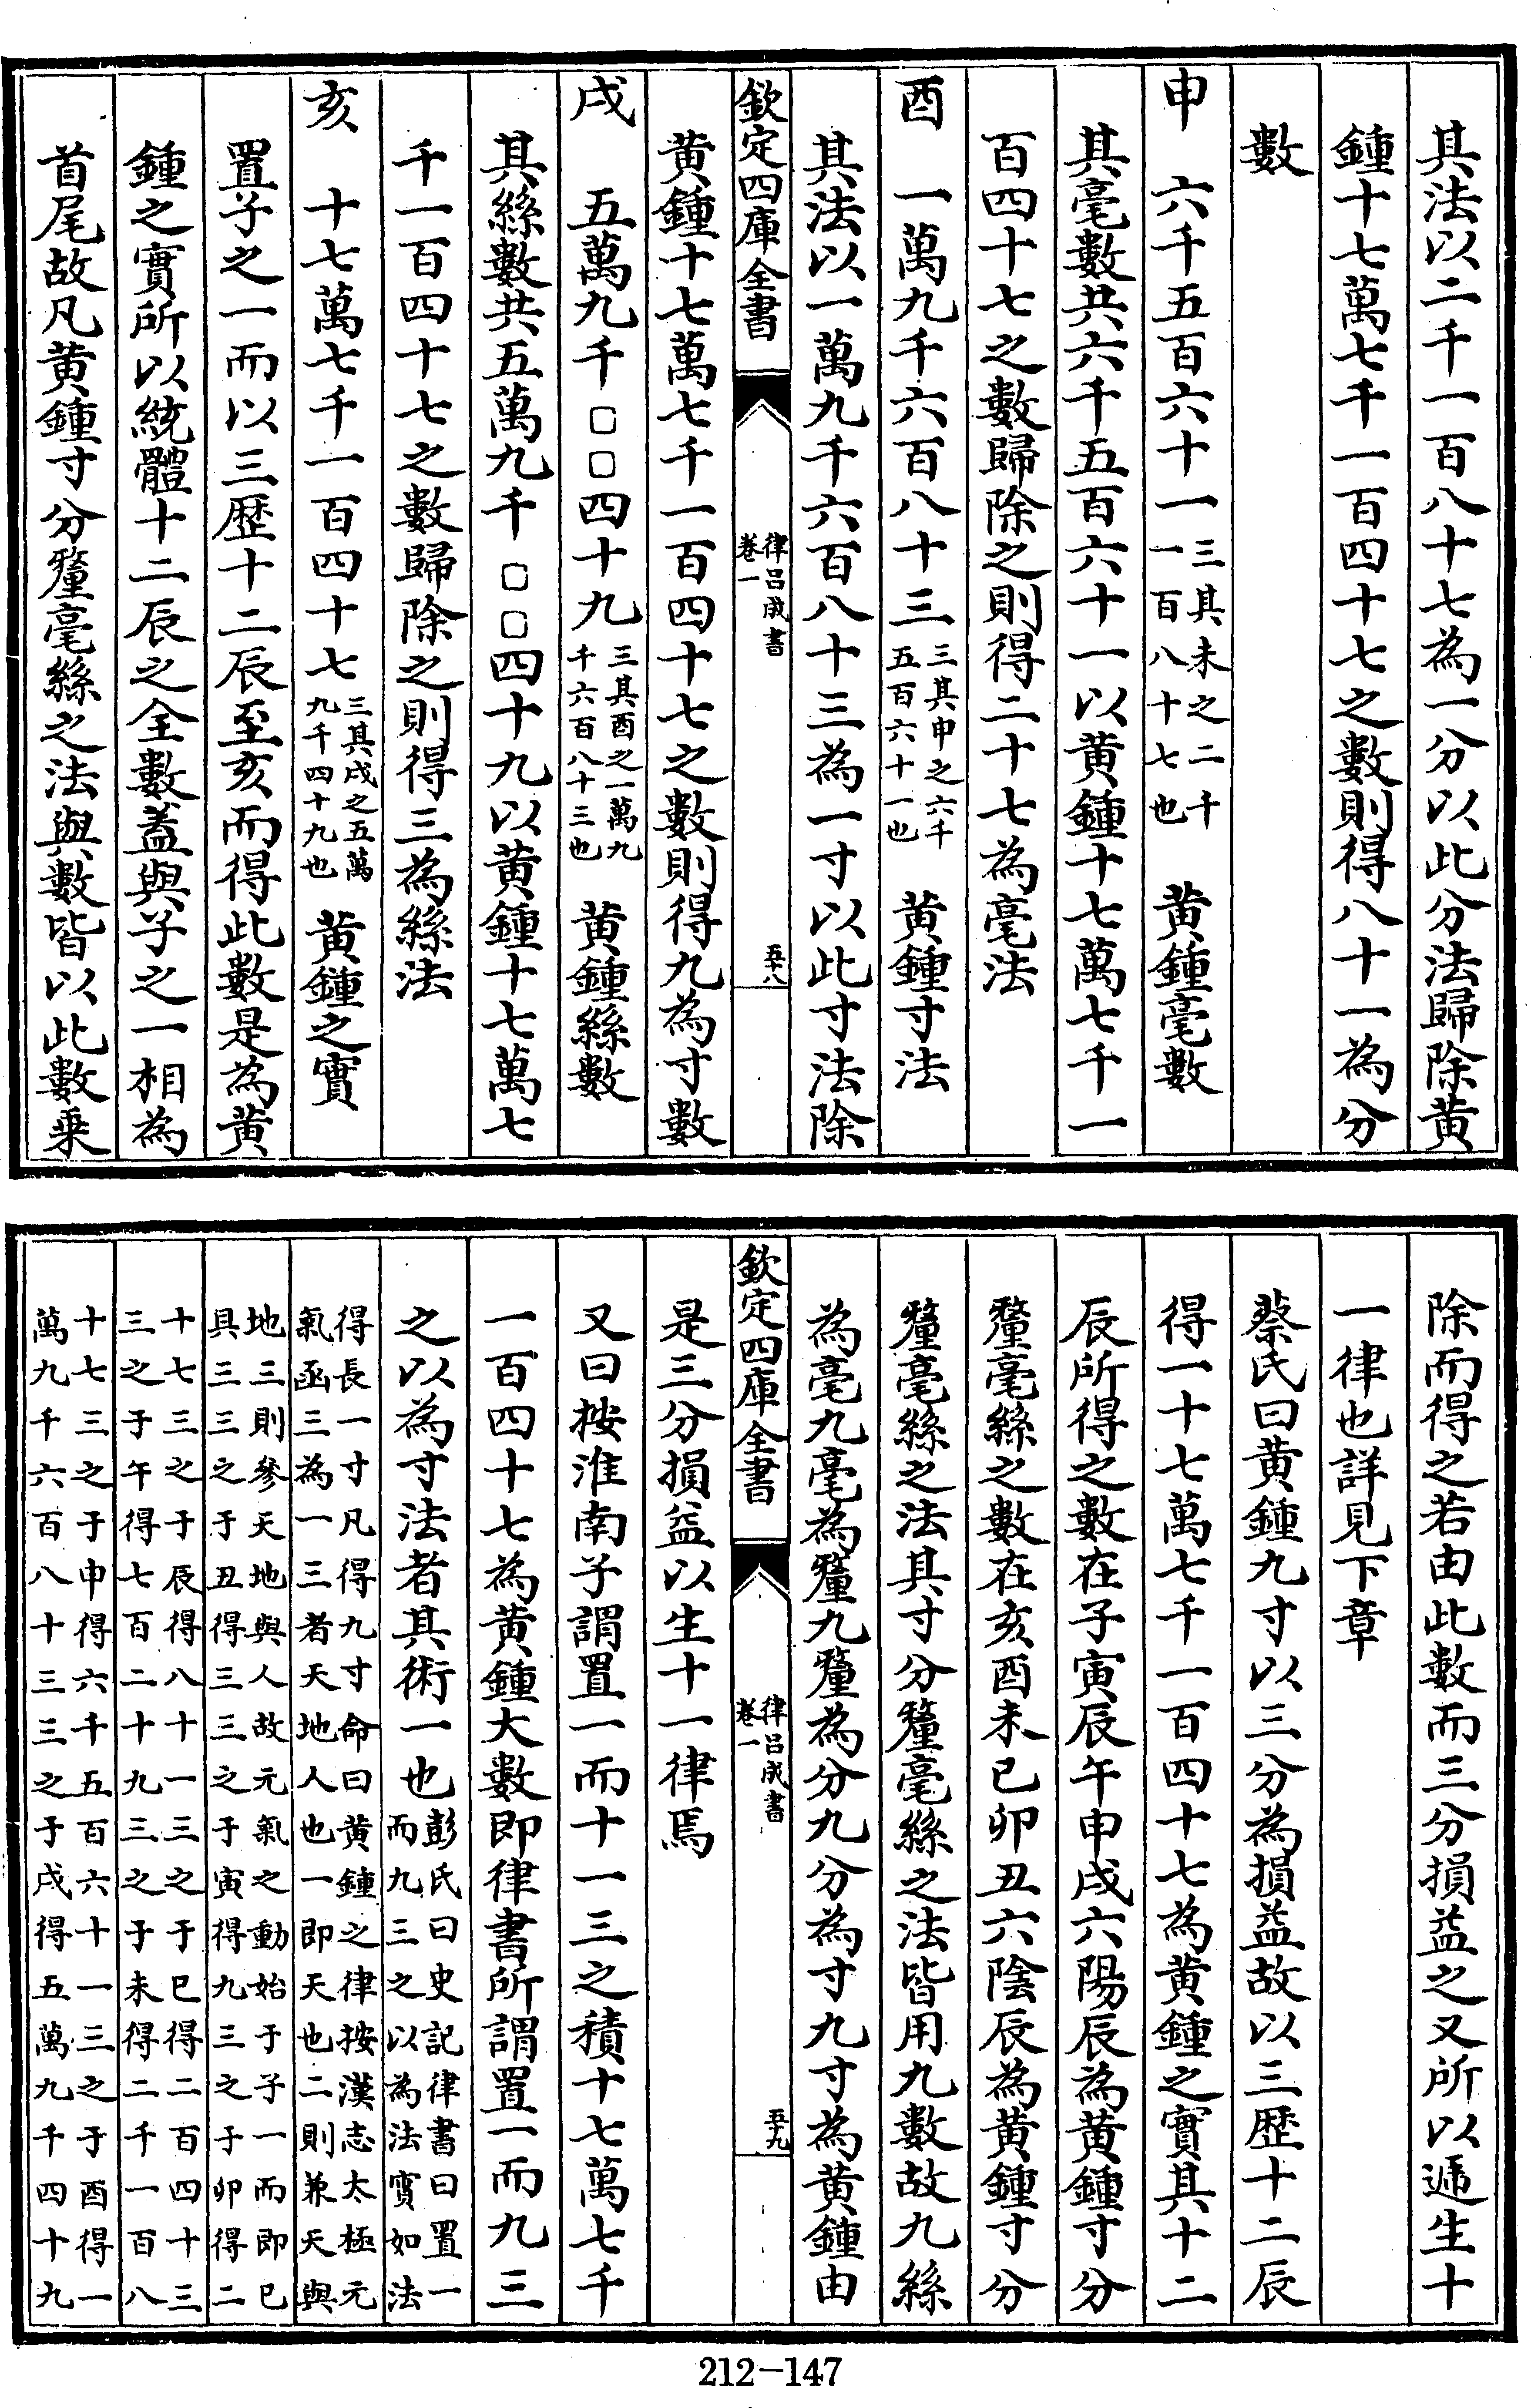 其法以二千一百八十七為一分以此分法歸除黃
鍾十七萬七千一百四十七之數則得八十一為分
數
申　六千五百六十一三其未之二千一百八十七也　黃鍾毫數
其毫數共六千五百六十一以黃鍾十七萬七千一
百四十七之數歸除之則得二十七為毫法
酉　一萬九千六百八十三三其申之六千五百六十一也　黃鍾寸法
其法以一萬九千六百八十三為一寸以此寸法除
欽定四庫全書
律呂成書
卷一
五十八
黃鍾十七萬七千一百四十七之數則得九為寸數
戌　五萬九千□□四十九三其酉之一萬九千六百八十三也　黃鍾絲數
其絲數共五萬九千□□四十九以黃鍾十七萬七
千一百四十七之數歸除之則得三為絲法
亥　十七萬七千一百四十七三其戌之五萬九千四十九也　黃鍾之實
置子之一而以三歷十二辰至亥而得此數是為黃
鍾之實所以統體十二辰之全數蓋與子之一相為
首尾故凡黃鍾寸分釐毫絲之法與數皆以此數乗
除而得之若由此數而三分損益之又所以遞生十
一律也詳見下章
蔡氏曰黃鍾九寸以三分為損益故以三歷十二辰
得一十七萬七千一百四十七為黃鍾之實其十二
辰所得之數在子寅辰午申戌六陽辰為黃鍾寸分
釐毫絲之數在亥酉未巳卯丑六陰辰為黃鍾寸分
釐毫絲之法其寸分釐毫絲之法皆用九數故九絲
為毫九毫為釐九釐為分九分為寸九寸為黃鍾由
欽定四庫全書
律呂成書
卷一
五十九
是三分損益以生十一律焉
又曰按淮南子謂置一而十一三之積十七萬七千
一百四十七為黃鍾大數即律書所謂置一而九三
之以為寸法者其術一也彭氏曰史記律書曰置一而九三之以為法實如法
得長一寸凡得九寸命曰黃鍾之律按漢志太極元氣函三為一三者天地人也一即天也二則兼天與
地三則參天地與人故元氣之動始于子一而即已具三三之于丑得三三之于寅得九三之于卯得二
十七三之于辰得八十一三之于巳得二百四十三三之于午得七百二十九三之于未得二千一百八
十七三之于申得六千五百六十一三之于酉得一萬九千六百八十三三之于戌得五萬九千四十九
212-147